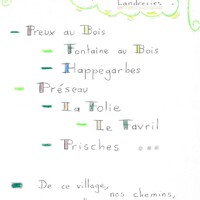 Landrecies.
- Preux au Bois
- Fontaine au Bois
- Happégarbes
- Préseau
- La Folie
- Le Favril
- Prisches ...
- De ce village,
nos chemins,